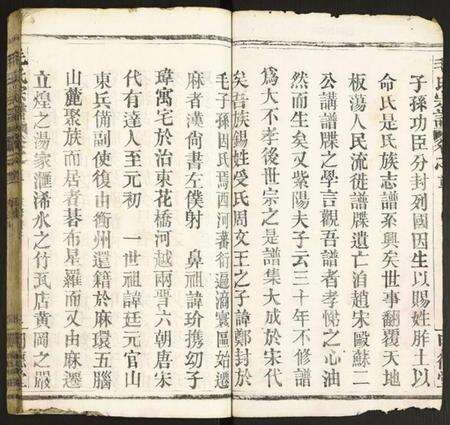 子孫功臣分封列國因生以賜姓胙土以
命氏是氏族志譜系興矣世事翻覆天地
板蕩人民流徙譜牒遺亡洎趙宋歐蘇二
公講譜牒之學言觀吾譜者孝悌之心油
然而生矣又紫陽夫子云三十年不修譜
為大不孝後世宗之是譜集大成於宋代
矣吾族錫姓受氏周文王之子諱鄭封於
毛子孫因氏焉西河蕃衍遍滿寰區始遷
麻者漢尚書左僕射 鼻祖諱玠攜幼子
瑋寓宅於東花橋河越兩晉六朝唐宋
代有達人至元初 一世祖諱廷元官山
東兵備副使復由衢州還籍於麻環五腦
山麓聚族而居者碁布星羅而又由麻遷
立煌之湯家滙浠水之竹瓦店黃岡之嚴
毛氏宗譜